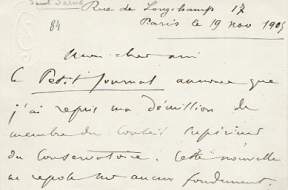 Rue de Longchamp 17
84
Paris le 19 nov 1905
Mon cher ami
Le Petit Journal annonce que
j'ai repris ma démission de
membre du conseil supérieur
du Conservatoire. Cette nouvelle
ne repose sur aucun fondement.